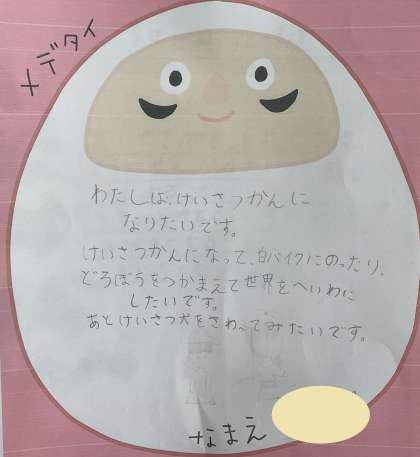 メデタイ
わたしは、けいさつかんに
なりたいです。
けいさつかんになって、白バイクにのったり、
どろぼうをつかまえて世界をへいわに
したいです。
あとけいさつ犬をさわってみたいです。
なまえ